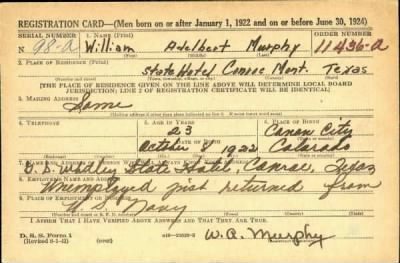 REGISTRATION CARD—(Men born on or after January 1, 1922 and on or before June 30, 1924)
SERIAL NUMBER 1. NAME (Print) ORDER NUMBER
N 98-a William Adelbert Murphy 11436-a
2. PLACE OF RESIDENCE (Print)
State Hotel Conroe Mont. Texas
[THE PLACE OF RESIDENCE GIVEN ON THE LINE ABOVE WILL DETERMINE LOCAL BOARD
JURISDICTION; LINE 2 OF REGISTRATION CERTIFICATE WILL BE IDENTICAL]
3. MAILING ADDRESS
Same
4. TELEPHONE 5. AGE IN YEARS 6. PLACE OF BIRTH
23 Canon City
DATE OF BIRTH
October 1922 Colorado
7. NAME AND ADDRESS OF PERSON WHO WILL ALWAYS KNOW YOUR ADDRESS
State Hotel, Conroe, Texas
Unemployed just returned from
U S Navy
I AFFIRM THAT I HAVE VERIFIED ABOVE ANSWERS AND THAT THEY ARE TRUE.
D. S. S. Form 1
(Revised 6-9-42)
W. A. Murphy